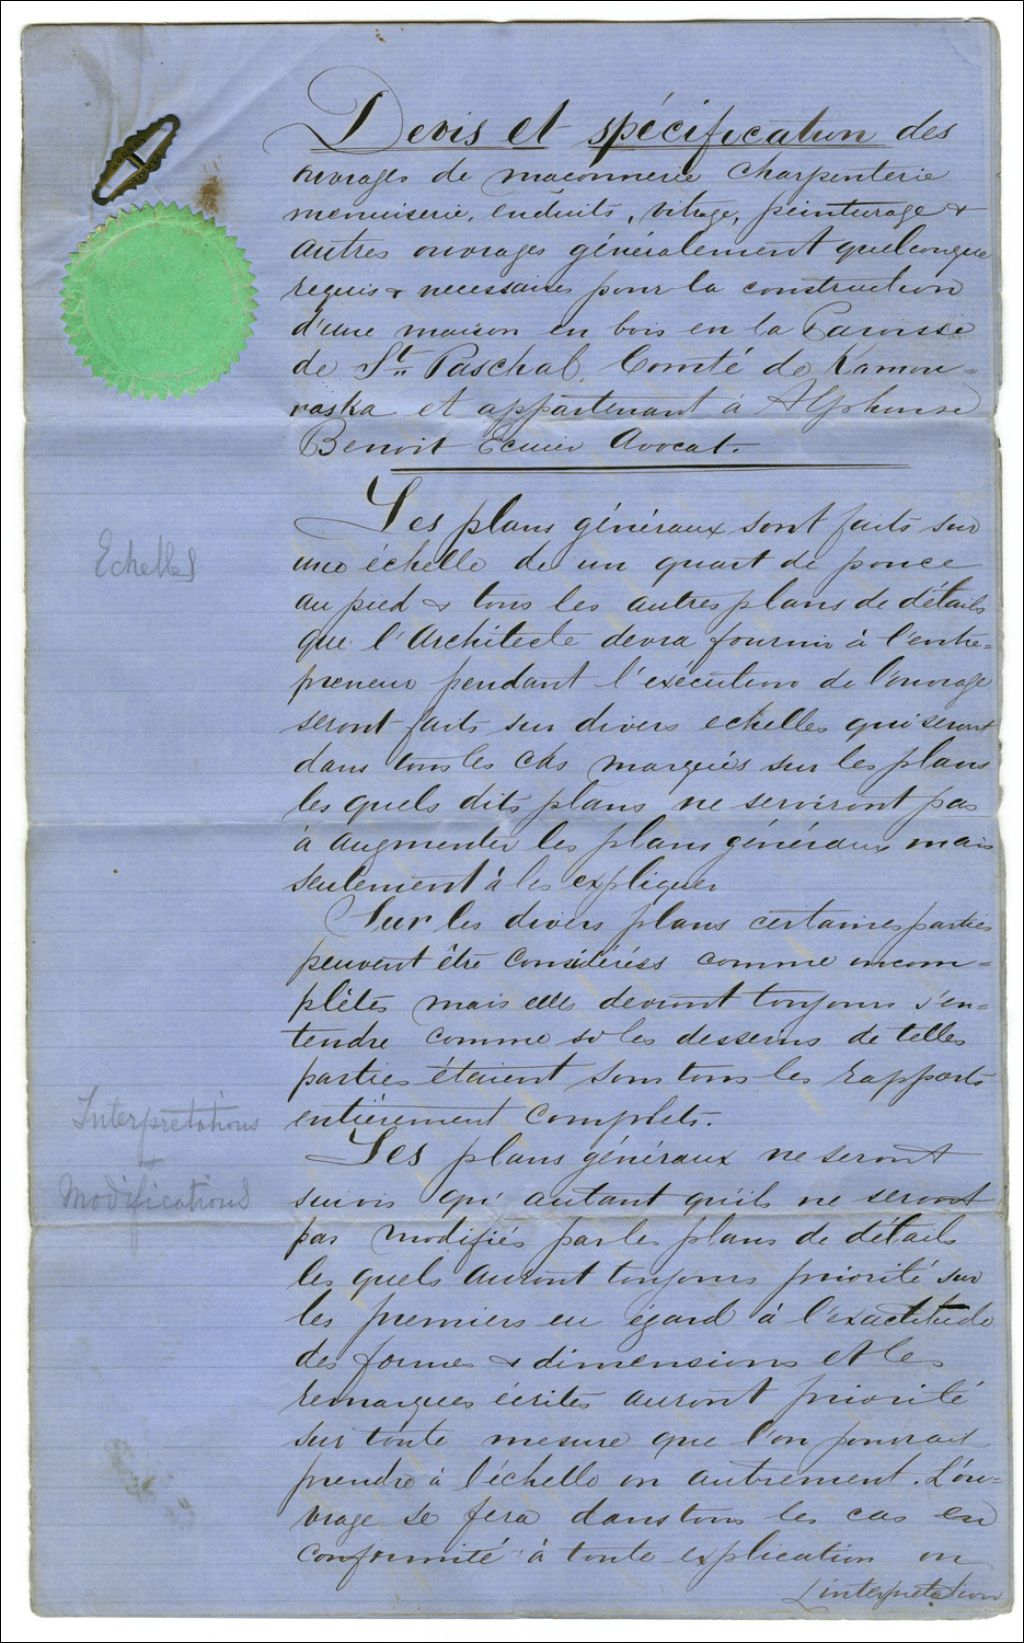 Devis et spécification des
ouvrages de maçonnerie charpenterie
menuiserie, enduits, vitrage, peinturage &
autres ouvrages généralement quelconque
requis & necessaires pour la construction
d'une maison en bois en la Paroisse
de St. Paschal, Comté de Kamou=
raska et appartenant à Alphonse
Benoit Ecuier Avocat.
Les plans généraux sont faits sur
Echelles
une échelle de un quart de pouce
au pied & tous les autres plans de détails
que l'Architecte devra fournir à l'entre=
preneur pendant l'exécution de l'ouvrage
seront faits sur divers echelles qui seront
dans tous les cas marqués sur les plans
les quels dits plans ne serviront pas
à augmenter les plans généraux mais
seulement à les expliquer
Sur les divers plans certaines parties
peuvent être considérées comme incom=
plètes mais elles devront toujours s'en=
tendre comme si les desseins de telles
parties étaient sous tous les rapports
Interprétations
entièrement complets.
Les plans généraux ne seront
Modifications
suivis qu'autant qu'ils ne seront
pas modifiés par les plans de détails
les quels auront toujours priorité sur
les premiers en égard à l'exactitude
des formes & dimensions et les
remarques écrites auront priorité
sur toute mesure que l'on pourrait
prendre à l'échelle ou autrement. L'ou=
vrage se fera dans tous les cas en
conformité à toute explication ou
L'interprétation